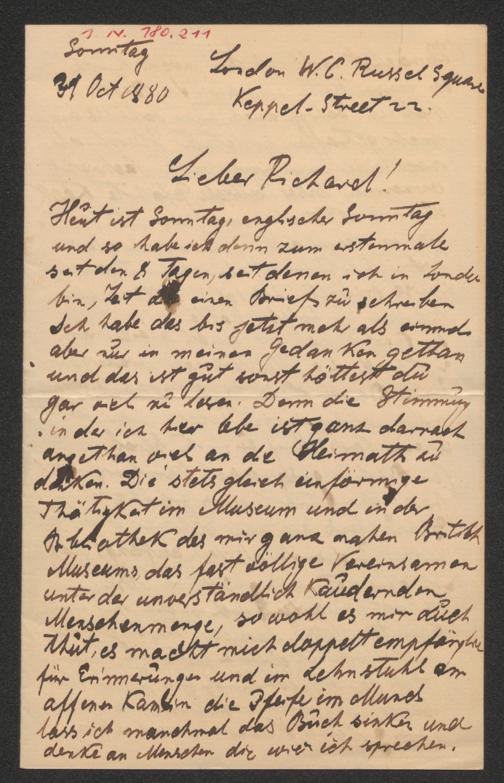 I. N. 180.211
Sonntag
31 Oct 1880
London W.C. Russel Square
Keppel-Street 22.
Lieber Richard!
Heut ist Sonntag, englischer Sonntag
und so habe ich denn zum erstenmale
seit den 8 Tagen, seit denen ich in London
bin, Zeit dir einen Brief zu schreiben
Ich habe das bis jetzt mehr als einmal
aber nur in meinen Gedanken gethan
und das ist gut sonst hättest du
gar viel zu lesen. Denn die Stimmung
in der ich hier lebe ist ganz darnach
angethan viel an die Heimath zu
denken. Die stets gleich einförmige
Thätigkeit im Museum und in der
Bibliothek des mir ganz nahen British
Museums das fast völlige Vereinsamen
unter der unverständlich kaudernden
Menschenmenge, so wohl es mir auch
thut, es macht mich doppelt empfänglich
für Erinnerungen und im Lehnstuhl am
offenen Kamin die Pfeife im Mund
lass ich manchmal das Buch sinken und
denke an Menschen die wie ich sprechen.